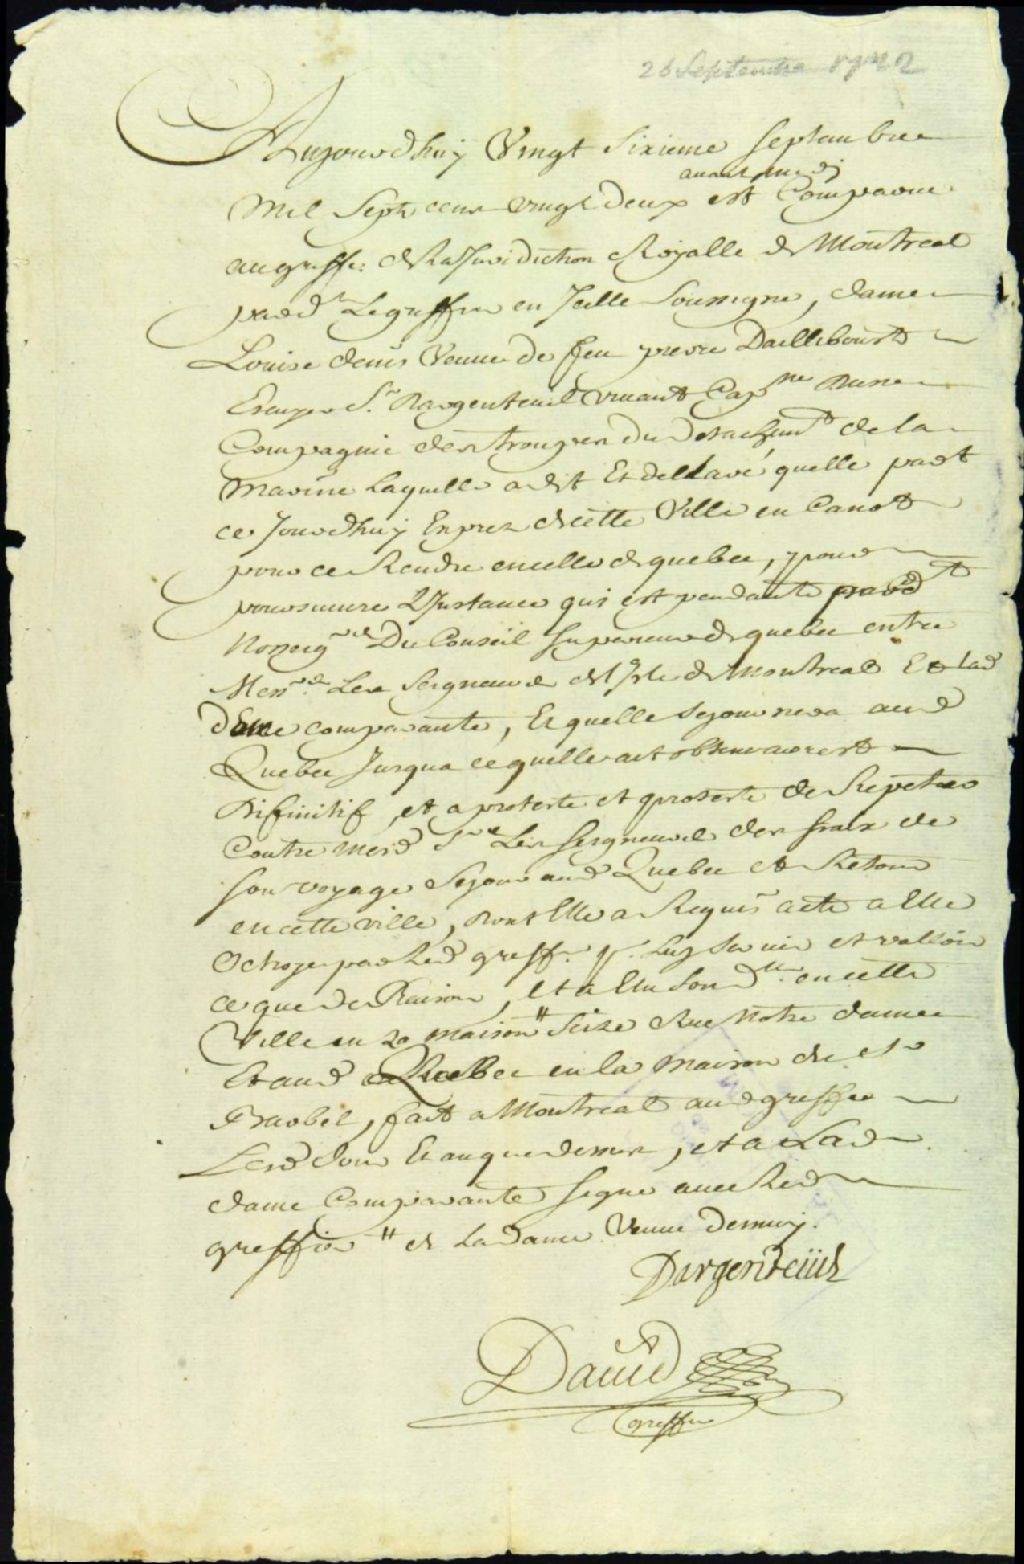 26 Septembre 1722
Aujourdhuy Vingt Sixieme Septembre
avant midj
Mil Sept cens vingt deux est Comparue
au greffe de La Jurisdiction Royalle de Montreal
pard.t Le greffier en Jcelle Soussigne, dame
Louise denis Veuue de feu pierre Dailleboust
Escuyer Sr. Dargenteuil viuant Capne Dune
Compagnie des trouppes du detachemt de la
Marine Laquelle a dit Et declaré quelle part
ce Jourdhuy Exprez de cette Ville en Canot
pour ce Rendre en celle de quebec, pour
poursuiure LJnstance qui est pendante pard.t
Nosseigrs Du Conseil Superieur de quebec entre
Messrs Les Seigneurs de LJsle de Montreal Et lad
dame comparante, Et quelle Sejournera aud
Quebec Jusqua ce quelle ait obtenu arrest
Difinitif, et a proteste et proteste de Repeter
Contre mesd Srs Les Seigneurs des fraix de
son voyage Sejour aud Quebec et Retour
en cette ville, dont Elle a Requis acte a Elle
Octroye par Led greff. p. Luy Seruir et valloir
ce que de Raison, Et a Elu Son d.lle en cette
Ville en la maison # Seize Rue Notre dame
Et aud Quebec en la maison de
, fait a Montreal aud greffe
Lesd Jour Et an que dessus, et a Lad
dame Comparante signe auec Led
greffier # de La dame Veuue demuy.
Dargenteüil
Dauid
greffier